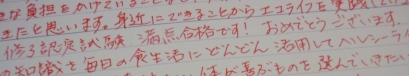 な負担をかけていること
きたと思います。身近にできることからエコライフを実践して
修了認定試験 満点合格です! おめでとうございます。
知識を毎日の食生活にどんどん活用してヘルシーライ
体が喜ぶものを選んでいきたい